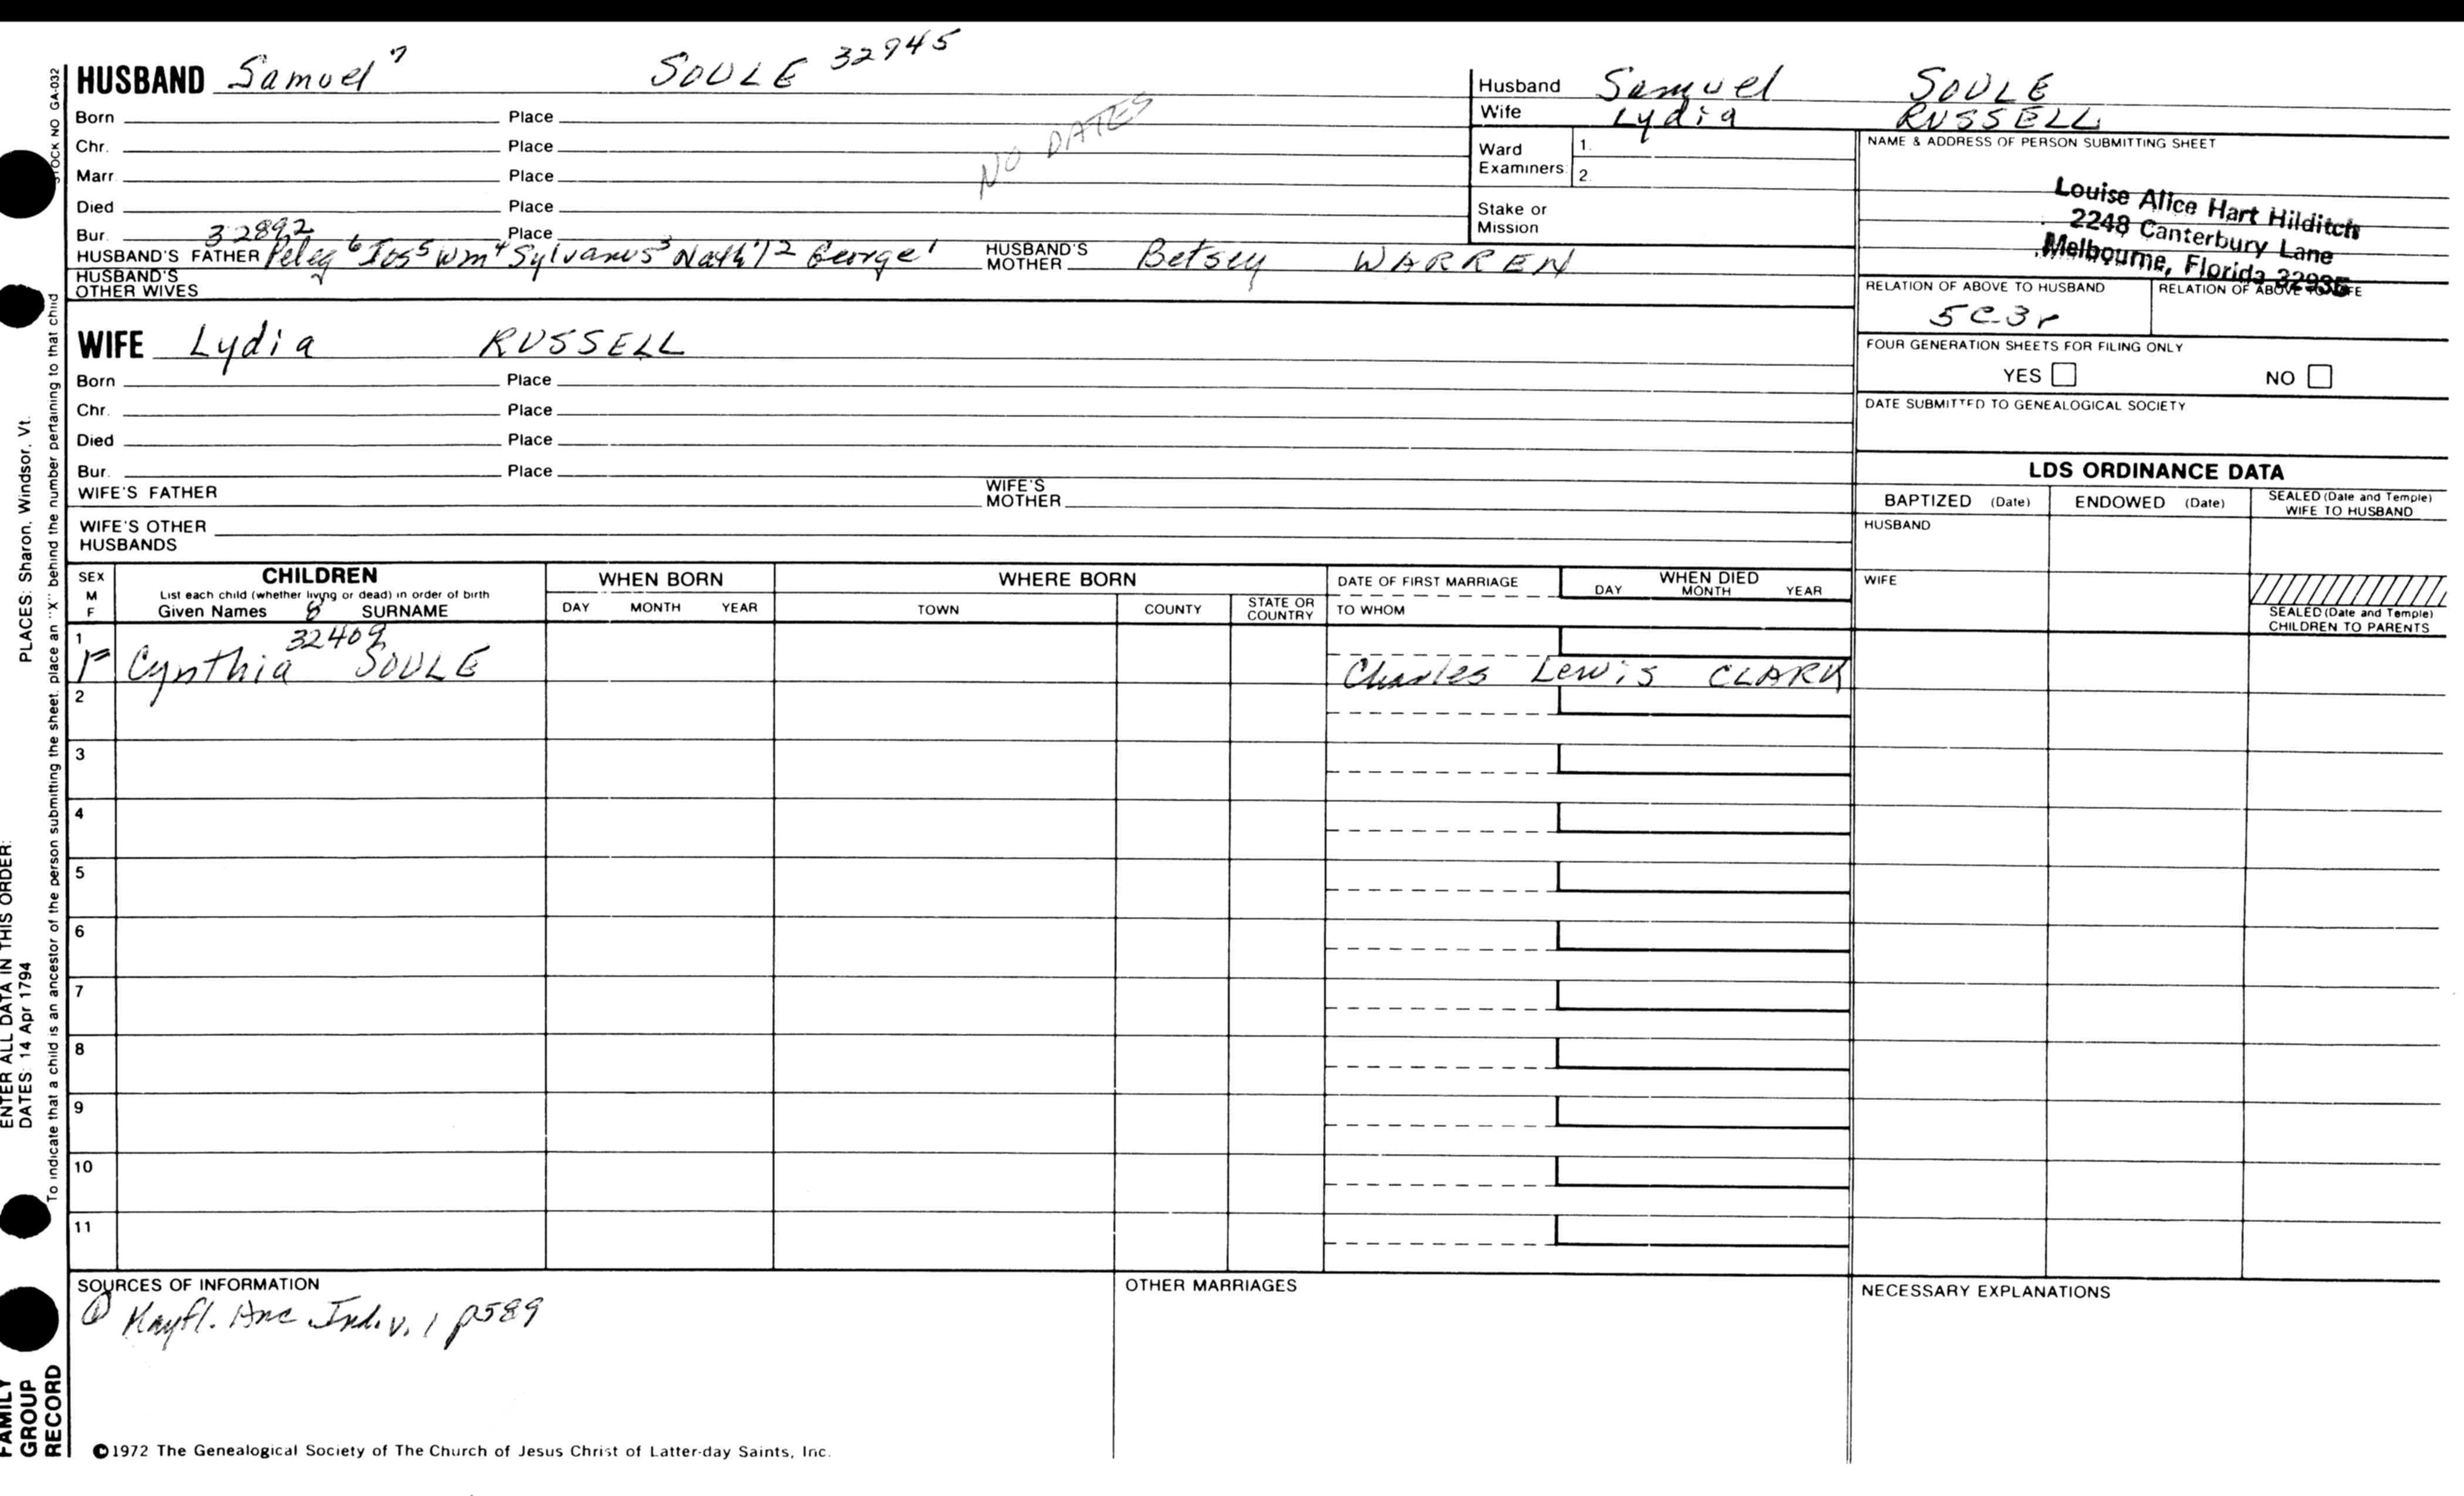 HUSBAND Samuel 7 SOULE 32945
Born Place
Chr. Place
NO DATES
Marr. Place
Died Place
Bur. Place
32892
HUSBAND'S FATHER Peleg 6 Jos 5 Wm 4 Sylvanus 3 Nath'l 2 George 1 HUSBAND'S MOTHER Betsey WARREN
HUSBAND'S OTHER WIVES
WIFE Lydia RUSSELL
Born Place
Chr. Place
Died Place
Bur. Place
WIFE'S FATHER WIFE'S MOTHER
WIFE'S OTHER HUSBANDS
Husband Samuel SOULE
Wife Lydia RUSSELL
Ward Examiners 1. 2.
Stake or Mission
NAME & ADDRESS OF PERSON SUBMITTING SHEET
Louise Alice Hart Hilditch
2248 Canterbury Lane
Melbourne, Florida 32935
RELATION OF ABOVE TO HUSBAND RELATION OF ABOVE TO WIFE
5C3r
FOUR GENERATION SHEETS FOR FILING ONLY
YES NO
DATE SUBMITTED TO GENEALOGICAL SOCIETY
LDS ORDINANCE DATA
BAPTIZED (Date) ENDOWED (Date) SEALED (Date and Temple) WIFE TO HUSBAND
HUSBAND
WIFE
SEALED (Date and Temple) CHILDREN TO PARENTS
SEX M F
CHILDREN
List each child (whether living or dead) in order of birth
Given Names SURNAME
8
WHEN BORN
DAY MONTH YEAR
WHERE BORN
TOWN COUNTY STATE OR COUNTRY
DATE OF FIRST MARRIAGE
TO WHOM
WHEN DIED
DAY MONTH YEAR
1
32409
F Cynthia SOULE Charles Lewis CLARK
2
3
4
5
6
7
8
9
10
11
SOURCES OF INFORMATION
① Mayfl. Anc Ind. v. 1 p589
OTHER MARRIAGES
NECESSARY EXPLANATIONS
©1972 The Genealogical Society of The Church of Jesus Christ of Latter-day Saints, Inc.
STOCK NO GA-032
To indicate that a child is an ancestor of the person submitting the sheet, place an "X" behind the number pertaining to that child
ENTER ALL DATA IN THIS ORDER:
DATES: 14 Apr 1794 PLACES: Sharon, Windsor, Vt.
FAMILY
GROUP
RECORD